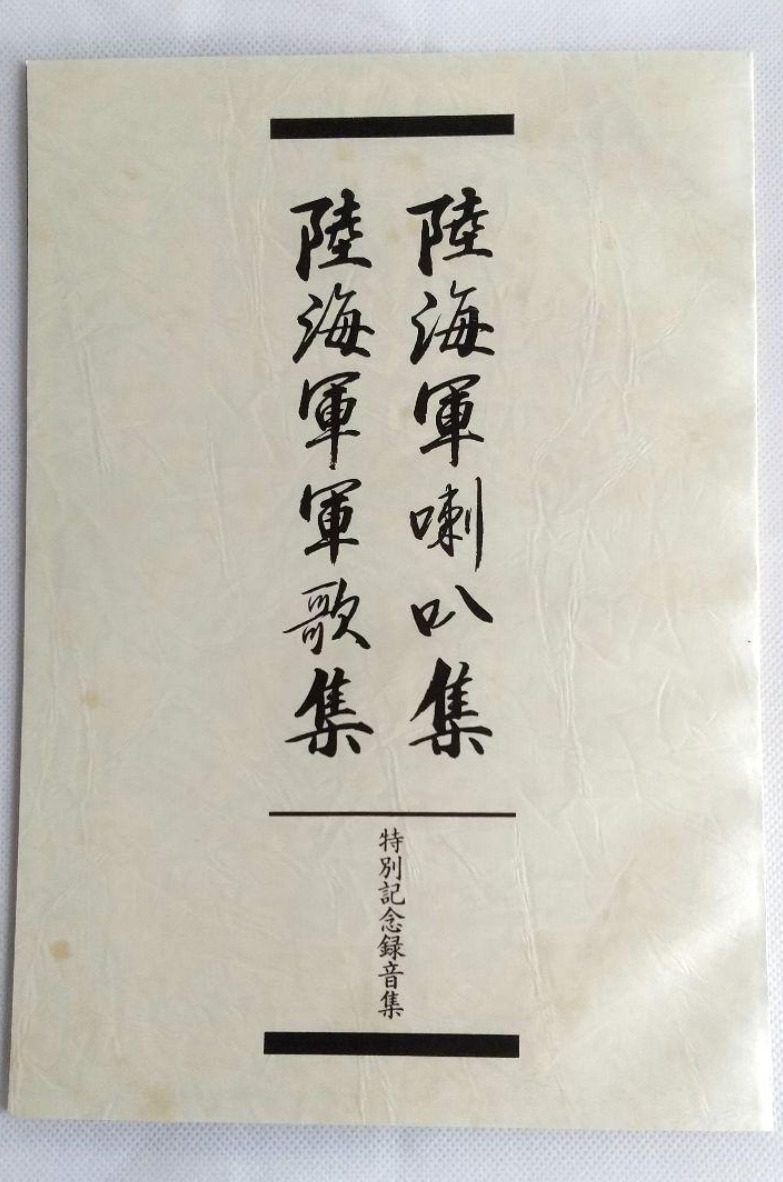 陸海軍喇叭集
陸海軍軍歌集
特別記念録音集